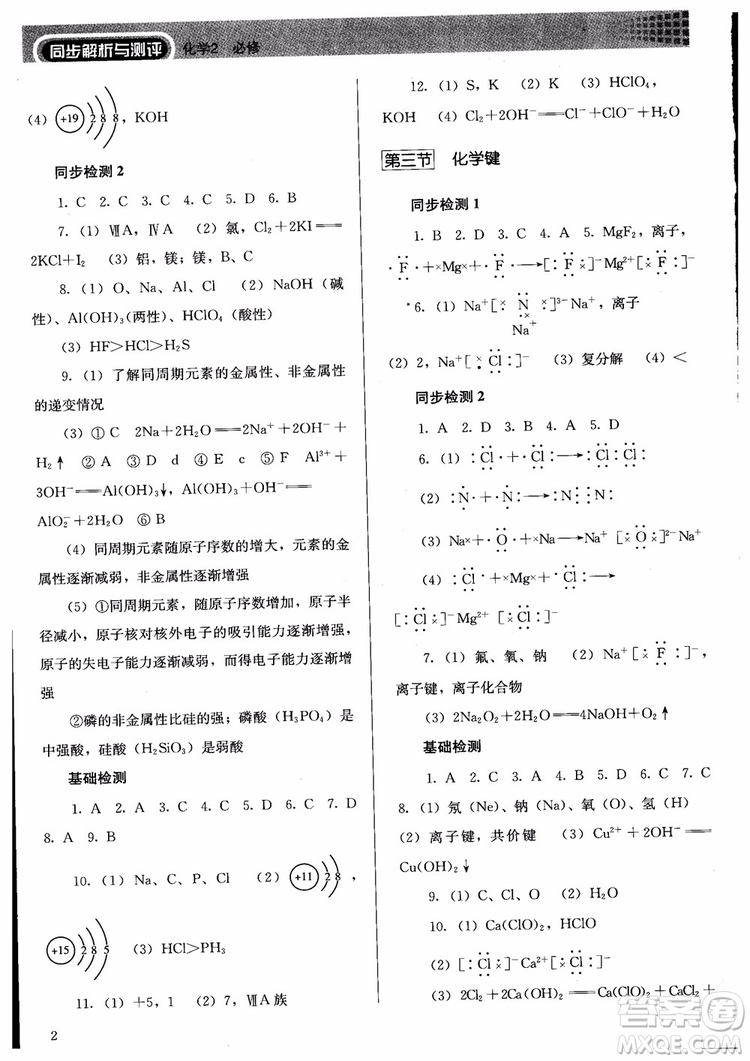 同步解析与测评 化学2 必修
(4) +19 2 8 8, KOH
同步检测 2
1. C 2. A 3. C 4. C 5. D 6. B
7. (1) ⅦA, ⅣA (2) 氯, Cl₂+2KI══
2KCl+I₂ (3) 铝, 镁; 镁, B、C
8. (1) O、Na、Al、Cl (2) NaOH (碱
性)、Al(OH)₃(两性)、HClO₄ (酸性)
(3) HF>HCl>H₂S
9. (1) 了解同周期元素的金属性、非金属性
的递变情况
(3) ①C 2Na+2H₂O══2Na⁺+2OH⁻+
H₂↑ ②A ③D d ④E c ⑤F Al³⁺+
3OH⁻══Al(OH)₃↓ Al(OH)₃+OH⁻══
AlO₂⁻+2H₂O ⑥B
(4) 同周期元素随原子序数的增大, 元素的金
属性逐渐减弱, 非金属性逐渐增强
(5) ①同周期元素, 随原子序数增加, 原子半
径减小, 原子核对核外电子的吸引能力逐渐增强,
原子的失电子能力逐渐减弱, 而得电子能力逐渐增
强
②磷的非金属性比硅的强; 磷酸 (H₃PO₄) 是
中强酸, 硅酸 (H₂SiO₃) 是弱酸
基础检测
1. A 2. A 3. C 4. B 5. C 6. C 7. D
8. A 9. B
10. (1) Na、C、P、Cl (2) +11 2 8,
+15 2 8 5 (3) HCl>PH₃
11. (1) +5, 1 (2) 7, ⅦA族
2
12. (1) S, K (2) K (3) HClO₄,
KOH (4) Cl₂+2OH⁻══Cl⁻+ClO⁻+H₂O
第三节 化学键
同步检测 1
1. B 2. D 3. C 4. A 5. MgF₂, 离子,
·F·+×Mg×+·F·→[:F×]⁻Mg²⁺[×F:]⁻
6. (1) Na⁺[×N×]³⁻Na⁺, 离子
Na⁺
(2) 2, Na⁺[×Cl:]⁻ (3) 复分解 (4) <
同步检测 2
1. A 2. A 3. D 4. A 5. D
6. (1) :Cl·+·Cl:→:Cl:Cl:
(2) :N·+·N:→:N⋮⋮N:
(3) Na×+·O·+×Na→Na⁺[×O×]²⁻Na⁺
(4) :Cl·+×Mg×+·Cl:→
[:Cl×]⁻Mg²⁺[×Cl:]⁻
7. (1) 氟、氧、钠 (2) Na⁺[×F:]⁻,
离子键, 离子化合物
(3) 2Na₂O₂+2H₂O══4NaOH+O₂↑
基础检测
1. C 2. A 3. C 4. B 5. D 6. B 7. C
8. (1) 氖 (Ne)、钠 (Na)、氧 (O)、氢 (H)
(2) 离子键, 共价键 (3) Cu²⁺+2OH⁻══
Cu(OH)₂↓
9. (1) C、Cl、O (2) H₂O
10. (1) Ca(ClO)₂, HClO
(2) [:Cl×]⁻Ca²⁺[×Cl:]⁻
(3) 2Cl₂+2Ca(OH)₂══Ca(ClO)₂+CaCl₂+
作业答案圈
MXEQ.COM